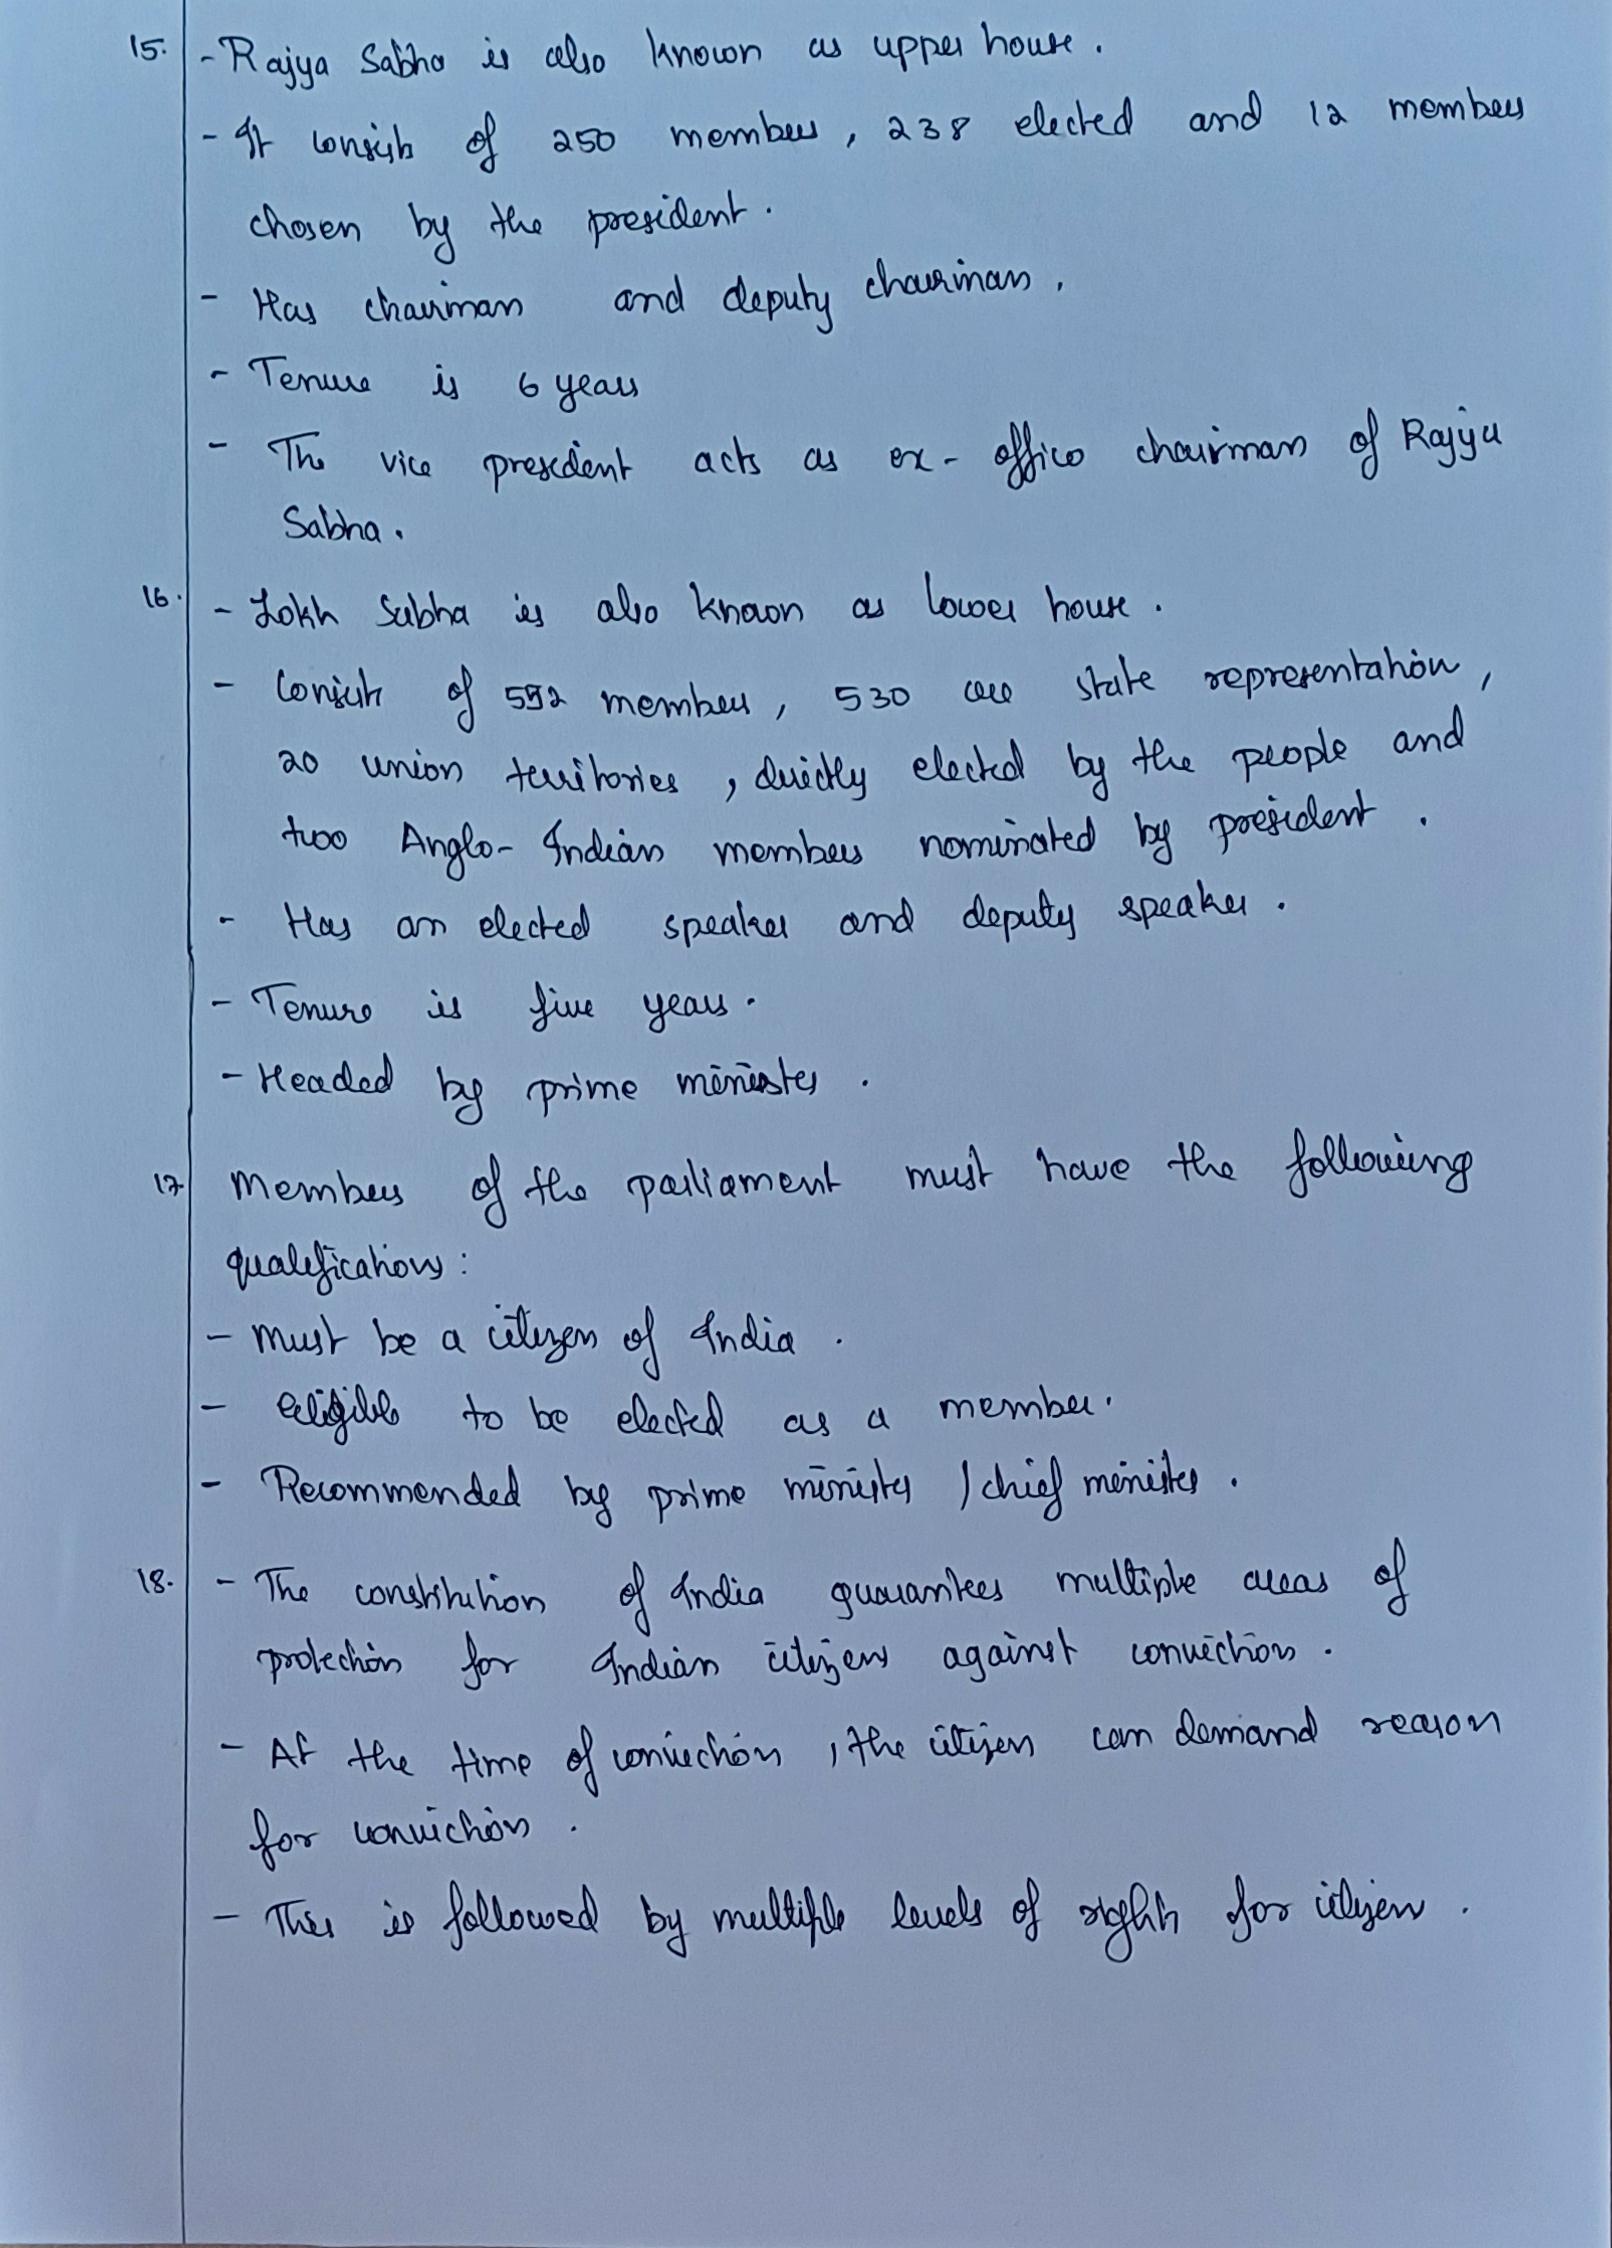 15. - Rajya Sabha is also known as upper house.
- It consists of 250 members, 238 elected and 12 members
chosen by the president.
- Has chairman and deputy chairman.
- Tenure is 6 years
- The vice president acts as ex-offico chairman of Rajya
Sabha.
16. - Lokh Sabha is also knaon as lower house.
- Consists of 592 members, 530 are state representation,
20 union territories, directly elected by the people and
two Anglo-Indian members nominated by president.
- Has an elected speaker and deputy speaker.
- Tenure is five years.
- Headed by prime minister.
17 Members of the parliament must have the following
qualifications:
- Must be a citizen of India.
- eligible to be elected as a member.
- Recommended by prime minister / chief minister.
18. - The constitution of India guarantees multiple areas of
protection for Indian citizens against conviction.
- At the time of conviction, the citizen can demand reason
for conviction.
- This is followed by multiple levels of rights for citizens.